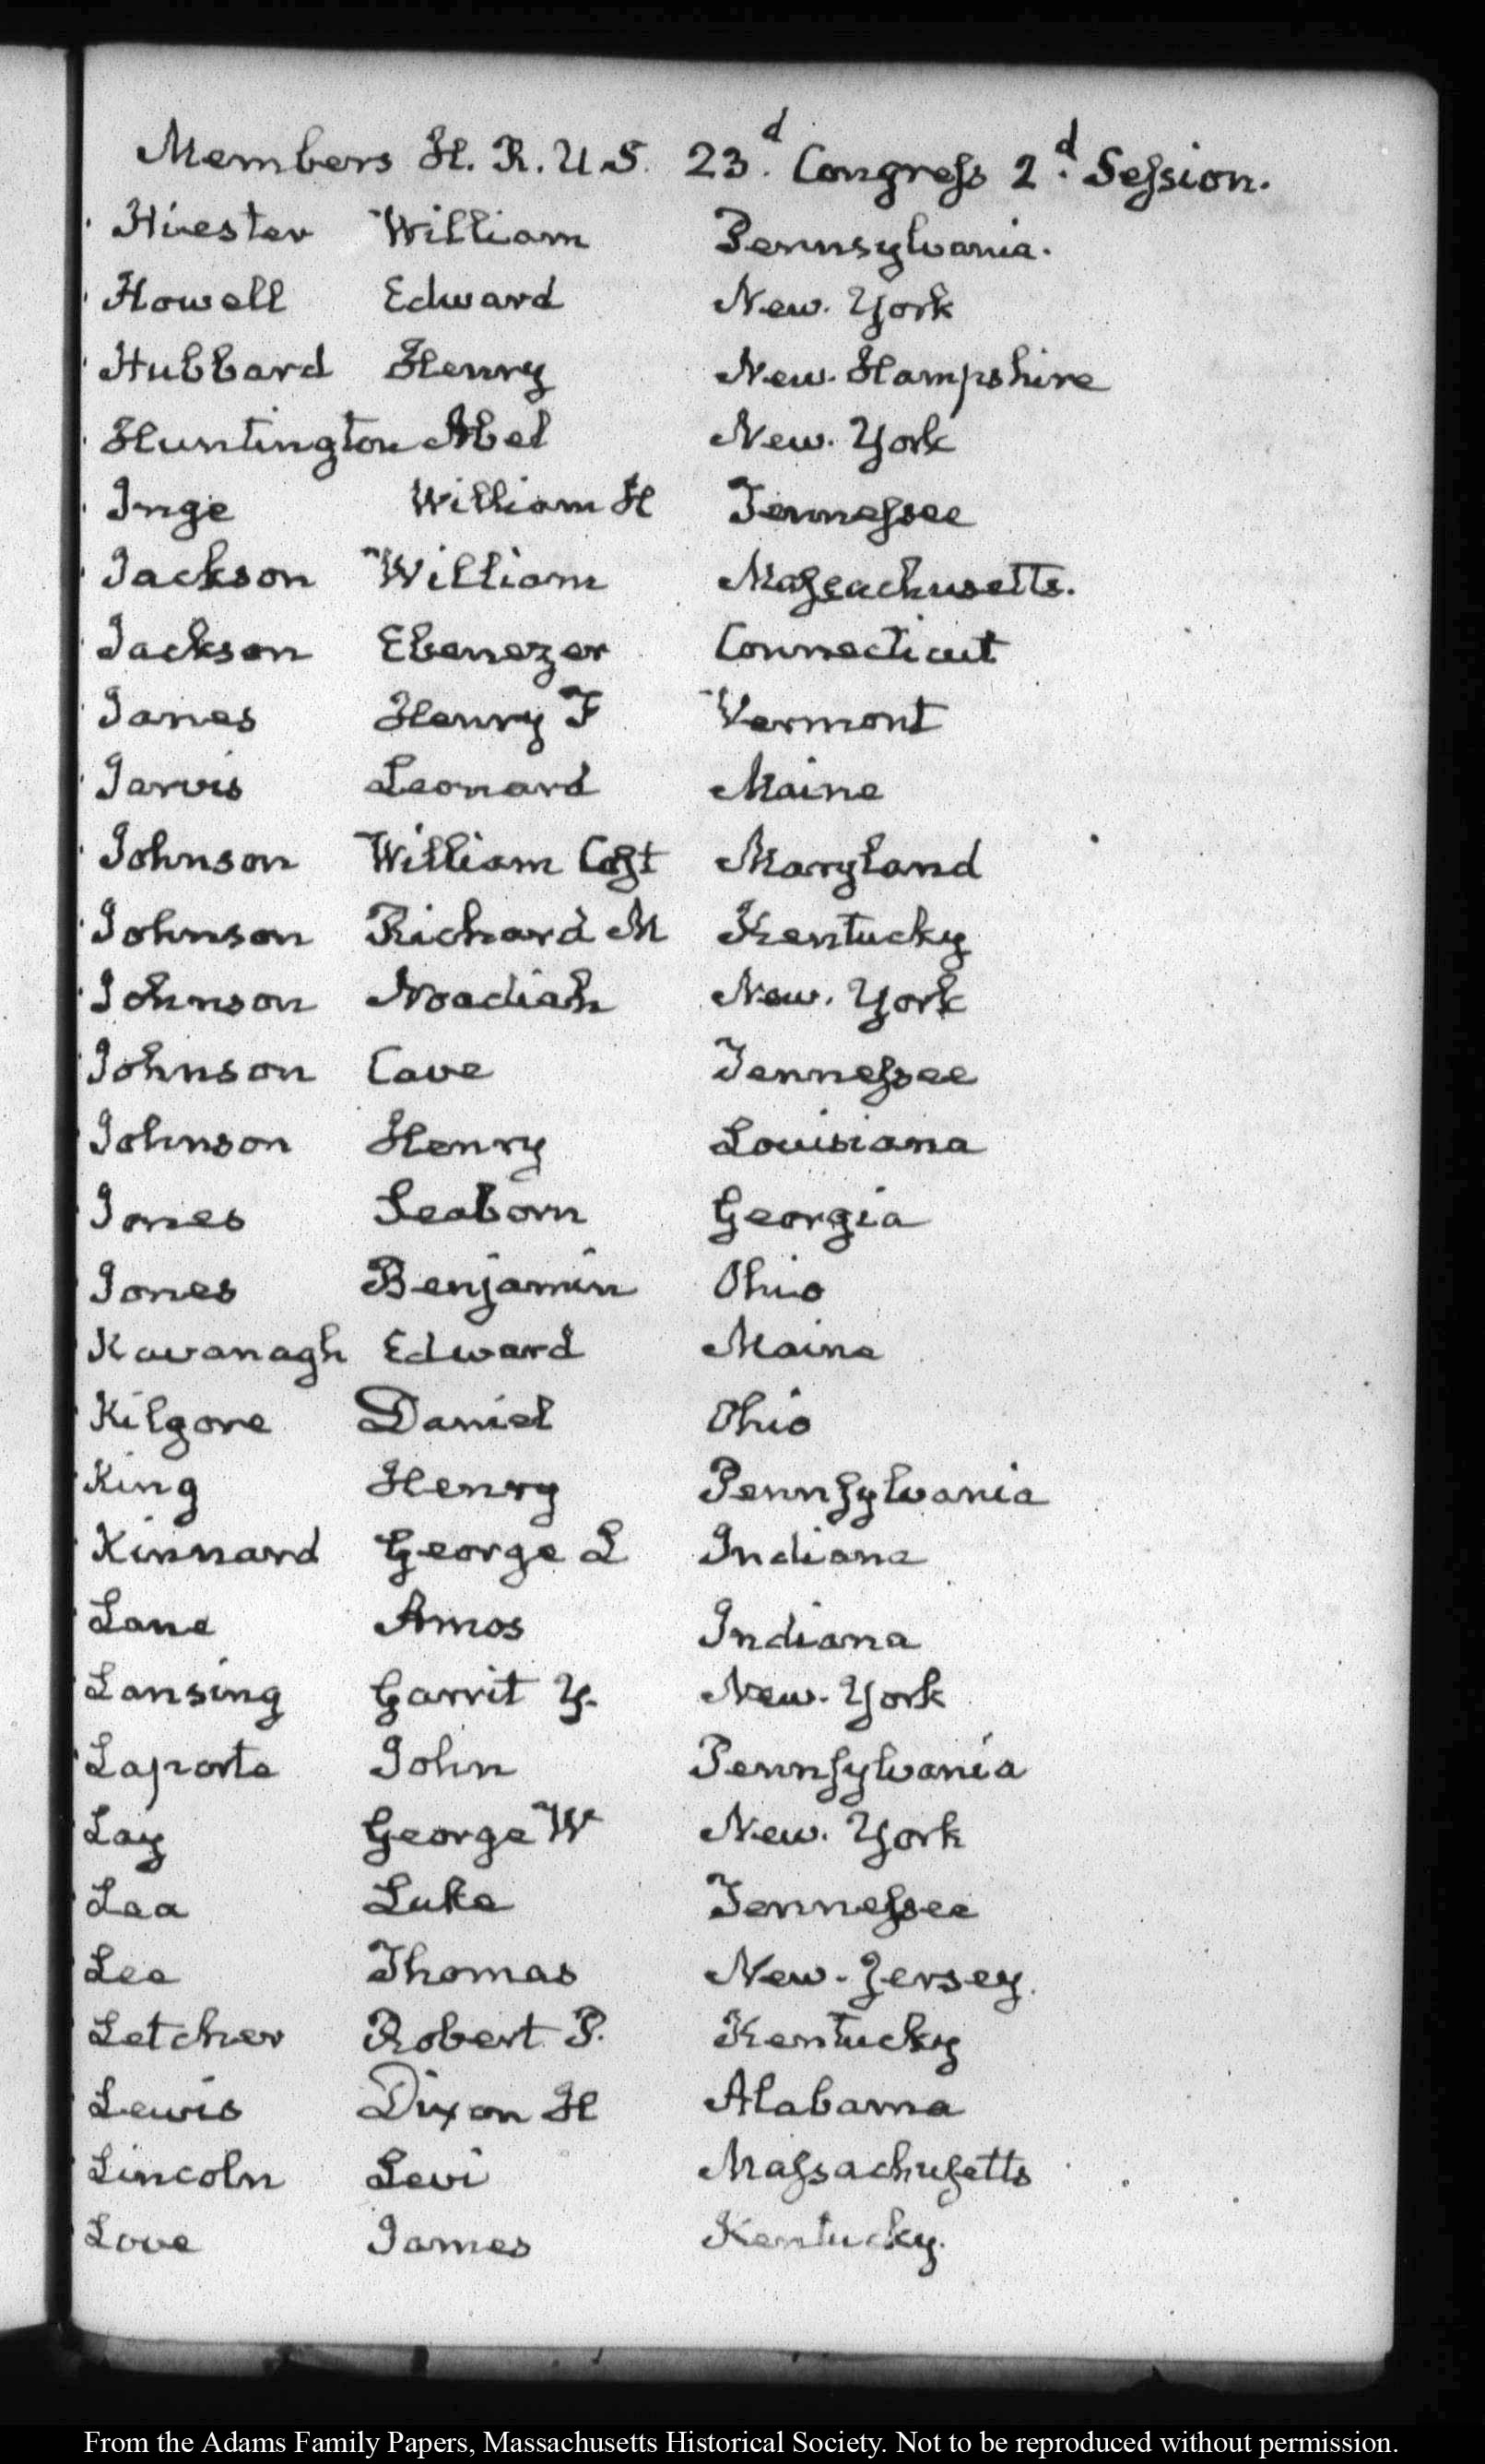 Members H. R. U.S. 23.d Congress 2.d Session.
Hiester William Pennsylvania.
Howell Edward New. York
Hubbard Henry New. Hampshire
Huntington Abel New. York
Inge William H Tennessee
Jackson William Massachusetts.
Jackson Ebenezer Connecticut
Janes Henry F Vermont
Jarvis Leonard Maine
Johnson William Cost Maryland
Johnson Richard M Kentucky
Johnson Noadiah New. York
Johnson Cave Tennessee
Johnson Henry Louisiana
Jones Seaborn Georgia
Jones Benjamin Ohio
Kavanagh Edward Maine
Kilgore Daniel Ohio
King Henry Pennsylvania
Kinnard George L Indiana
Lane Amos Indiana
Lansing Garrit Y. New. York
Laporte John Pennsylvania
Lay George W New. York
Lea Luke Tennessee
Lee Thomas New-Jersey.
Letcher Robert P. Kentucky
Lewis Dixon H Alabama
Lincoln Levi Massachusetts
Love James Kentucky.
From the Adams Family Papers, Massachusetts Historical Society. Not to be reproduced without permission.